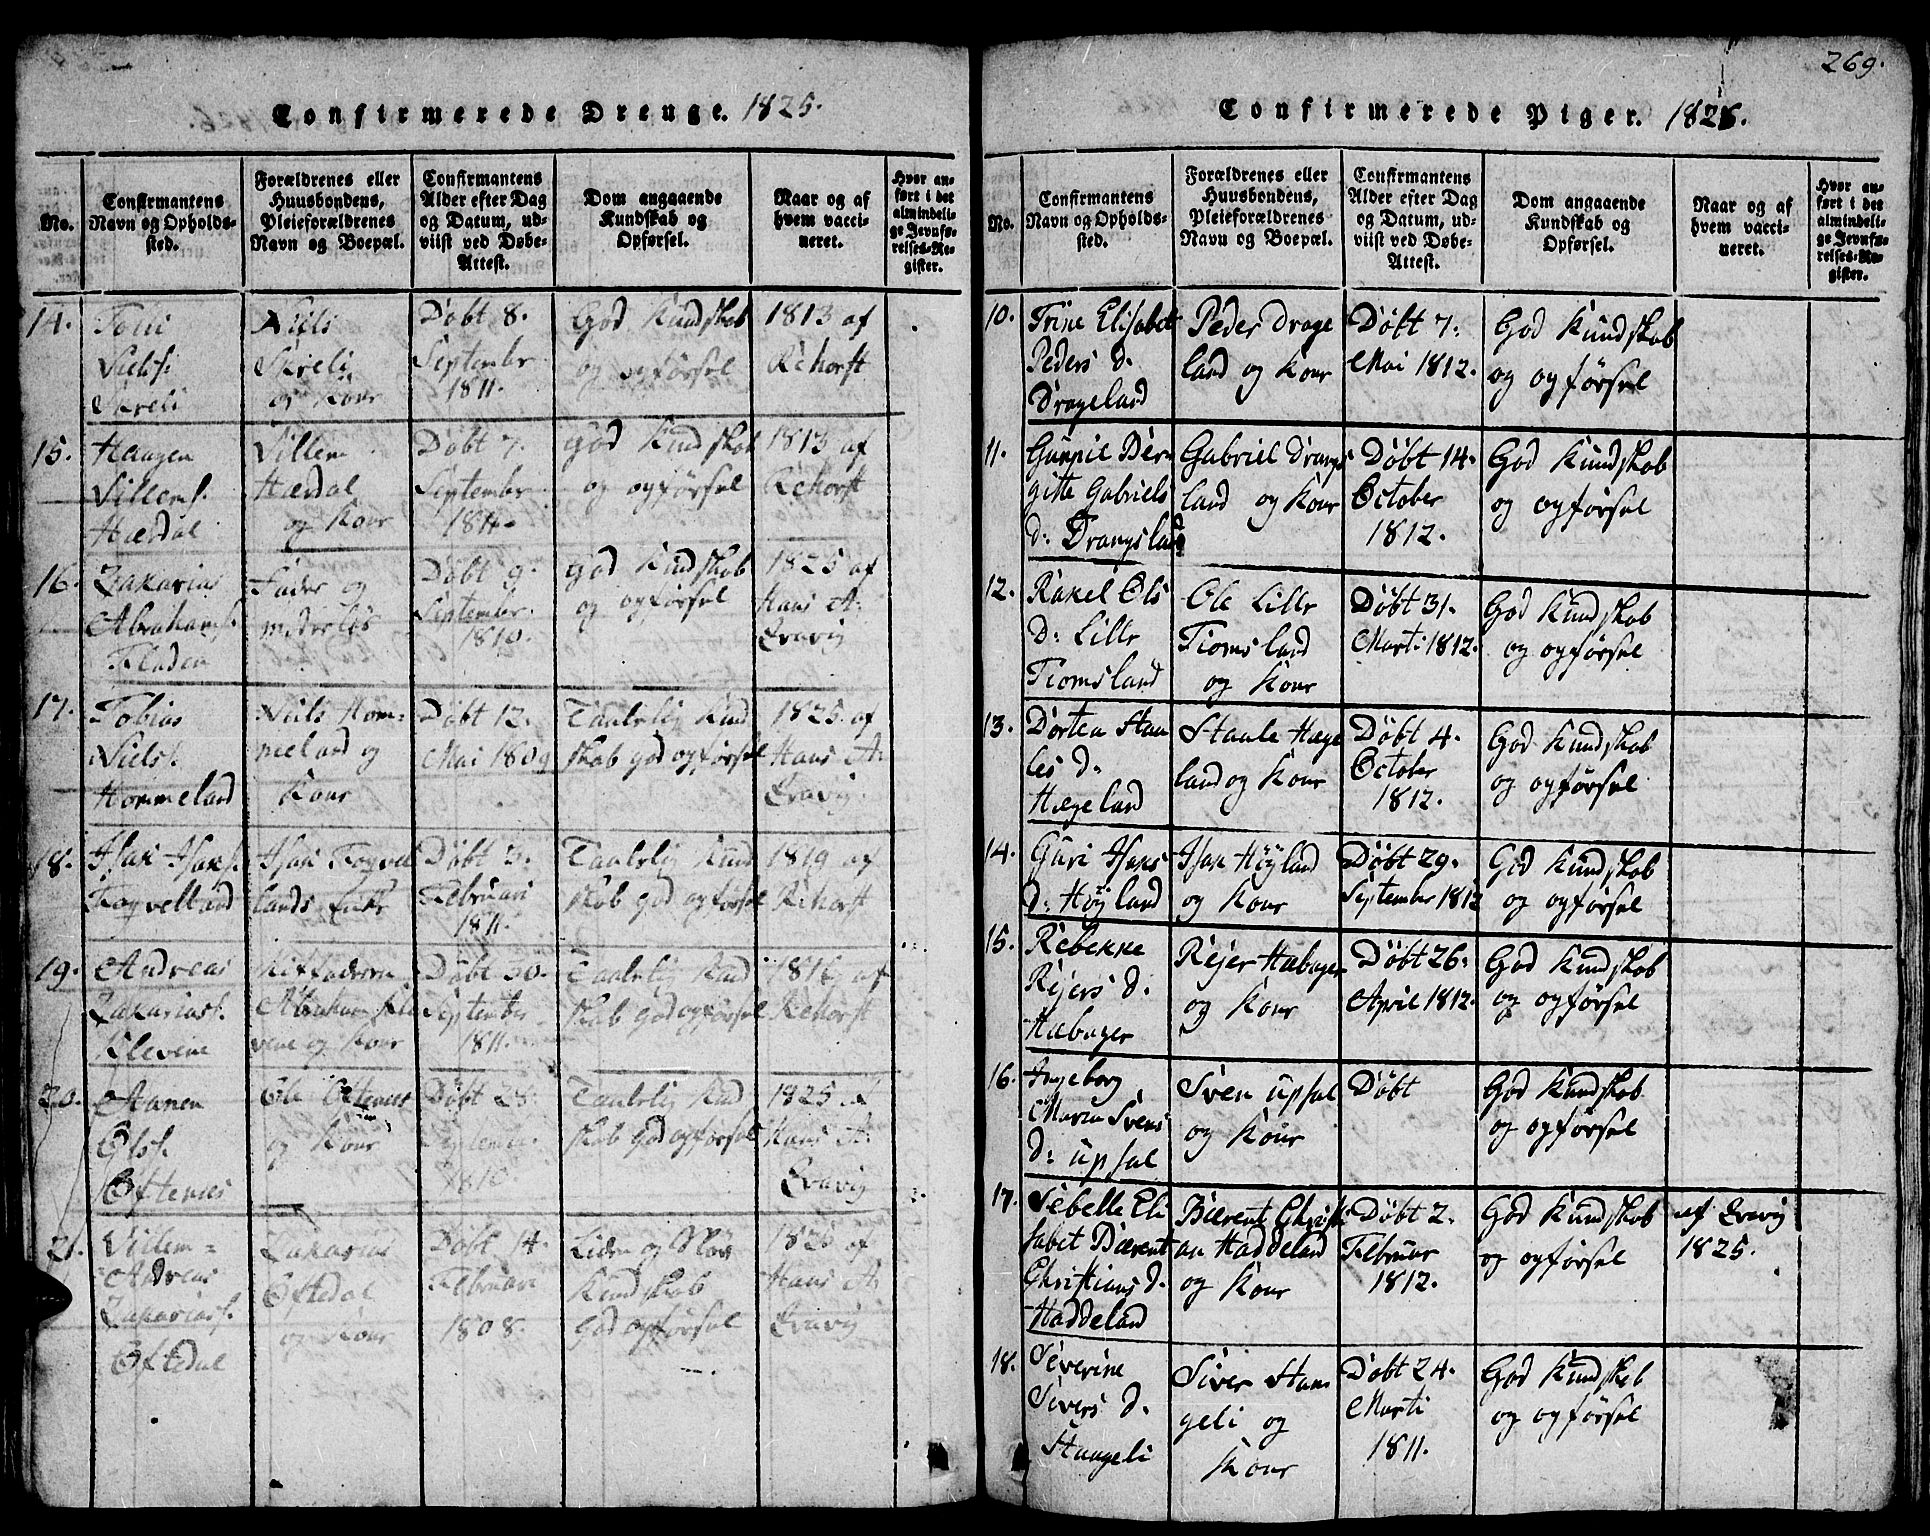 Confirmerede Drenge. 1825.
No.
Confirmantens
Navn og Opholds-
sted.
Forældrenes eller
Huusbondens,
Pleieforældrenes
Navn og Boepæl.
Confirmantens
Alder efter Dag
og Datum, ud-
viist ved Døbe-
Attest.
Dom angaaende
Kundskab og
Opførsel.
Naar og af
hvem vacci-
neret.
Hvor an-
ført i det
almindeli-
ge Jevnfø-
relses-Re-
gister.
14.
Skreli
Niels
Skreli
og Kone
Døbt 8.
September
1811.
God Kundskab
og opførsel
1813 af
Rehorst
15.
Haagen
Villems.
Hærdal
Villem
Hærdal
og Kone
Døbt 7.
September
1811.
God Kundskab
og opførsel
1813 af
Rehorst
16.
Zakarias
Abrahams.
Fladen
Fader og
moderløs
Døbt 9.
September
1810.
God Kundskab
og opførsel
1825 af
Hans A.
Eravig
17.
Tobias
Niels.
Hommeland
Niels Hom-
meland og
Kone
Døbt 12.
Mai 1809
Taalelig Kund
skab god opførsel
1825 af
Hans A.
Eravig
18.
Isak Isaks.
Fogvelland
Isak Fogvel
lands Enke
Døbt 3.
Februari
1811.
Taalelig Kund
skab god opførsel
1819 af
Rehorst
19.
Andreas
Zakarias.
Klevene
Abraham Kle
vene og Kone
Døbt 30.
September
1811.
Taalelig Kund
skab god opførsel
1816 af
Rehorst
20.
Aanen
Ols.
Oftenes
Ole Oftenes
og Kone
Døbt 28.
September
1810.
Taalelig Kund
skab god opførsel
1825 af
Hans A.
Eravig
21.
Villem
Andreas
Zakarias.
Oftedal
Zakarias
Oftedal
og Kone
Døbt 14.
Februari
1808.
Liden og sløv
Kundskab
god opførsel
1825 af
Hans A.
Eravig
269.
Confirmerede Piger. 1825.
No.
Confirmantens
Navn og Opholds-
sted.
Forældrenes eller
Huusbondens,
Pleieforældrenes
Navn og Boepæl.
Confirmantens
Alder efter Dag
og Datum, ud-
viist ved Døbe-
Attest.
Dom angaaende
Kundskab og
Opførsel.
Naar og af
hvem vacci-
neret.
Hvor an-
ført i det
almindeli-
ge Jevnfø-
relses-Re-
gister.
10.
Trine Elisabet
Peders d.
Drageland
Peder Drage
land og Kone
Døbt 7.
Mai 1812.
God Kundskab
og opførsel
11.
Gunnil Ber
gitte Gabriels
d: Drangsland
Gabriel Drangs
land og Kone
Døbt 14.
October
1812.
God Kundskab
og opførsel
12.
Rakel Ols
d: Lille
Tiomsland
Ole Lille
Tiomsland
og Kone
Døbt 31.
Marti 1812.
God Kundskab
og opførsel
13.
Dorten Staa
les d.
Hægeland
Staale Hæge
land og Kone
Døbt 4.
October
1812.
God Kundskab
og opførsel
14.
Guri Isaks
d: Höyland
Isak Höyland
og Kone
Døbt 29.
September 1812
God Kundskab
og opførsel
15.
Rebekke
Rejers d.
Hæbager
Rejer Hæbager
og Kone
Døbt 26.
April 1812.
God Kundskab
og opførsel
16.
Ingeborg
Maria Svens
d: upsal
Sven upsal
og Kone
Døbt
God Kundskab
og opførsel
17.
Sebelle Eli
sabet Bærent
Christians d.
Haddeland
Bærent Christi
an Haddeland
og Kone
Døbt 2.
Februar
1812.
God Kundskab
og opførsel
af Eravig
1825.
18.
Siverine
Sivers d.
Haugeli
Siver Hau
geli og
Kone
Døbt 24.
Marti
1811.
God Kundskab
og opførsel